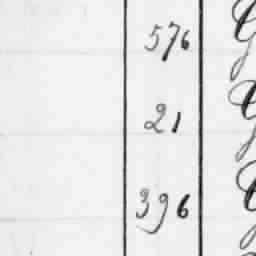 576
21
396